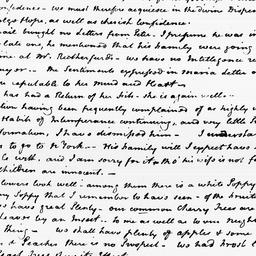 confidence - We must therefore acquiesce in the divine Dispos
ulge Hope, as well as cherish Confidence.
ail brought no Letters from Peter. I presume he was in
late one, he mentioned that his family were going
ine at Mr. Rutherfurds - We have no Intelligence re
The Sentiments expressed in Maria's letter
reputable to her mind and Heart -
has had a Return of her Fits - she is again well -
having been frequently complained of as highly
Habits of Intemperance continuing, and very little
formation, I have dismissed him - I unders
to go to N York - His family will I expect have
to with, and I am sorry for it, for tho' his wife is not
children are innocent. -
lowers look well - among them there is a white Poppy
any Poppy that I remember to have seen - of the fruits
have great Plenty - our common Cherry Trees are
leaves by an Insect - to me as well as to our neigh
thing - We shall have plenty of apples & some
& Peaches there is no Prospect - We had frost